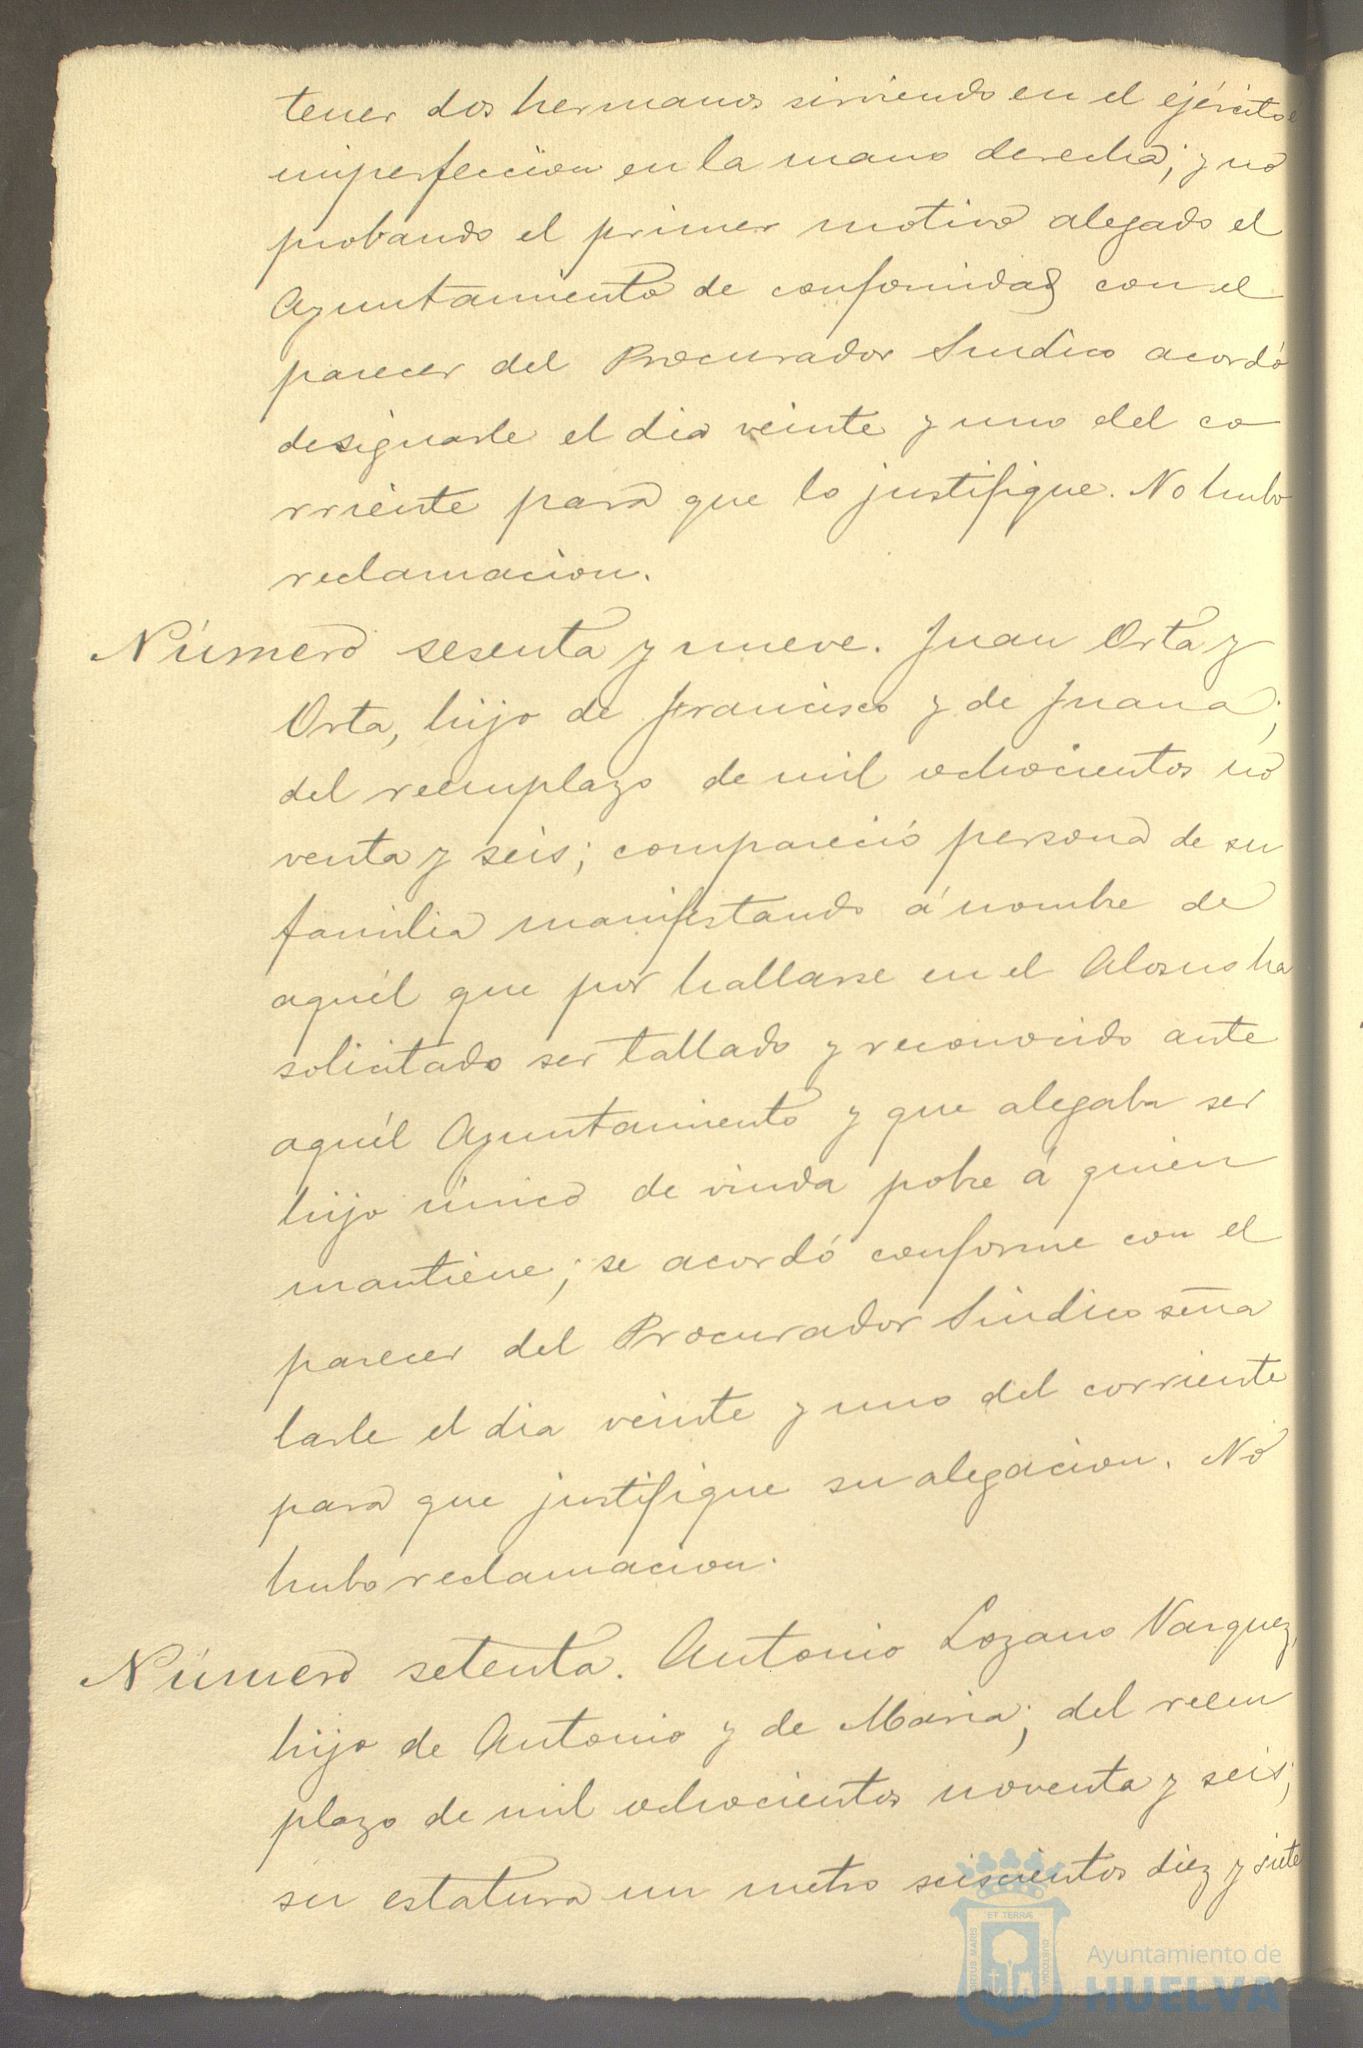 tener dos hermanos sirviendo en el ejército é
imperfeccion en la mano derecha; y no
probando el primer motivo alegado el
Ayuntamiento de conformidad con el
parecer del Procurador Sindico acordó
designarle el dia veinte y uno del co
rriente para que lo justifique. No hubo
reclamacion.
Número sesenta y nueve. Juan Orta y
Orta, hijo de Francisco y de Juana;
del reemplazo de mil ochocientos no
venta y seis; compareció persona de su
familia manifestando á nombre de
aquél que por hallarse en el Alosno ha
solicitado ser tallado y reconocido ante
aquél Ayuntamiento y que alegaba ser
hijo único de viuda pobre á quien
mantiene; se acordó conforme con el
parecer del Procurador Sindico seña
larle el dia veinte y uno del corriente
para que justifique su alegacion. No
hubo reclamacion.
Número setenta. Antonio Lozano Varquez,
hijo de Antonio y de Maria; del reem
plazo de mil ochocientos noventa y seis;
su estatura un metro seiscientos diez y siete
ET TERRÆ
PORTUS MARIS
CUSTODIA
Ayuntamiento de
HUELVA